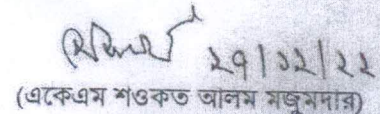 ২৭/১২/২২
(একেএম শওকত আলম মজুমদার)